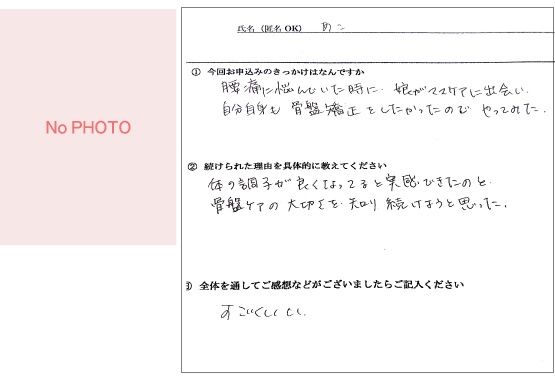 No PHOTO
氏名（匿名OK） あこ
① 今回お申込みのきっかけはなんですか
腰痛に悩んでいた時に、娘がママケアに出会い、
自分自身も骨盤矯正をしたかったのでやってみた。
② 続けられた理由を具体的に教えてください
体の調子が良くなってると実感できたのと
骨盤ケアの大切さを知り続けようと思った。
③ 全体を通してご感想などがございましたらご記入ください
すごくいい。